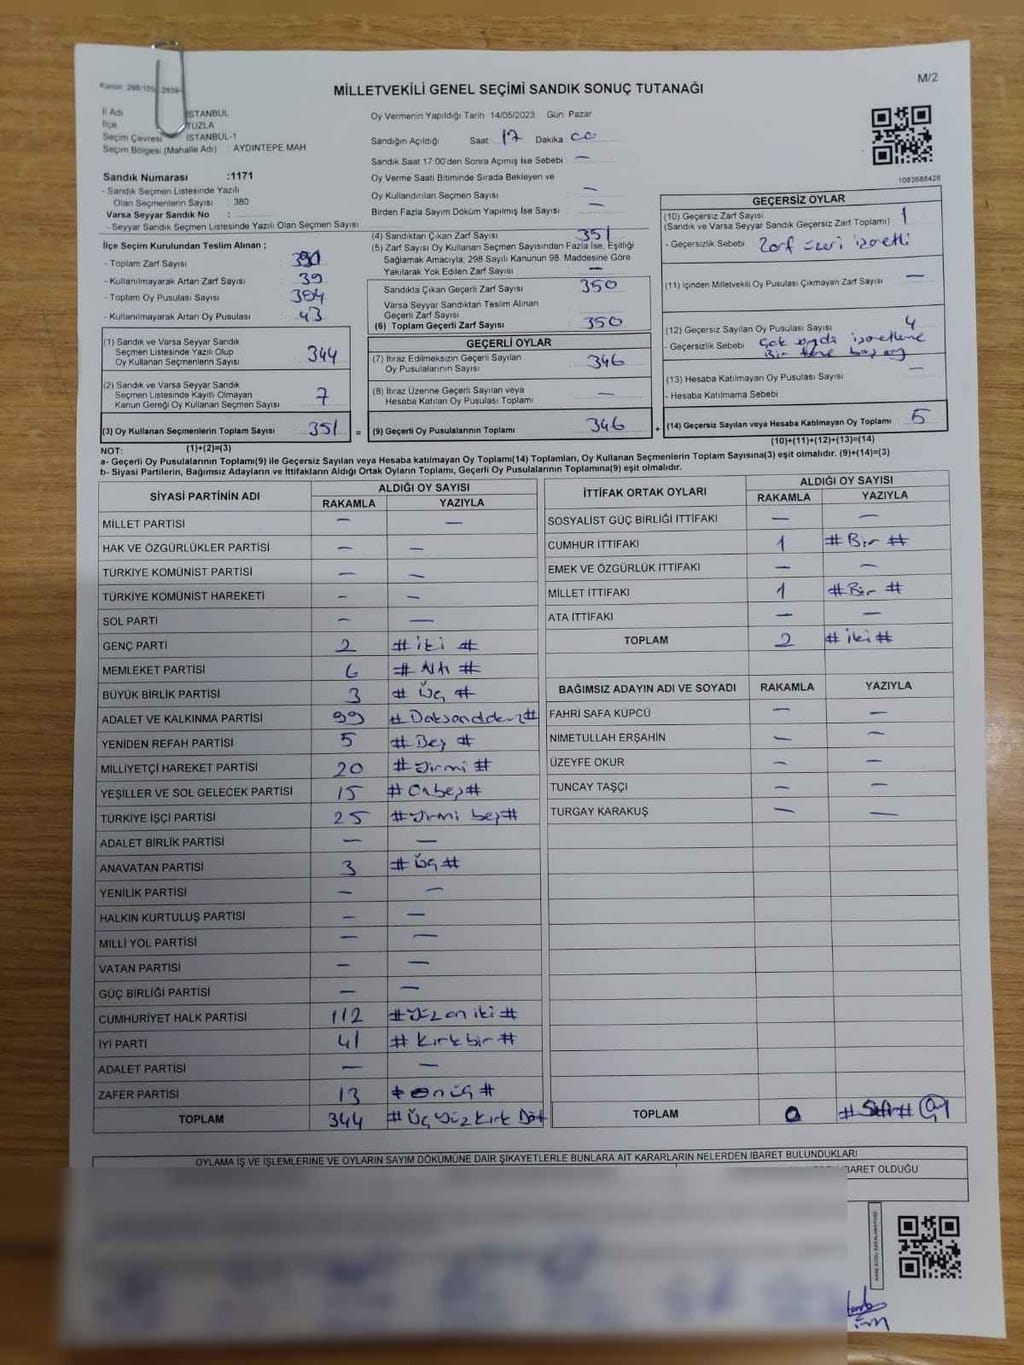 M/2
MİLLETVEKİLİ GENEL SEÇİMİ SANDIK SONUÇ TUTANAĞI
İl Adı İSTANBUL
İlçe TUZLA
Seçim Çevresi İSTANBUL-1
Seçim Bölgesi (Mahalle Adı) : AYDINTEPE MAH
Oy Vermenin Yapıldığı Tarih 14/05/2023 Gün: Pazar
Sandığın Açıldığı Saat: 17 Dakika 00
Sandık Saat 17:00'den Sonra Açımış İse Sebebi —
Oy Verme Saati Bitiminde Sırada Bekleyen ve
Oy Kullandırılan Seçmen Sayısı —
Birden Fazla Sayım Döküm Yapılmış İse Sayısı —
1083688428
Sandık Numarası :1171
- Sandık Seçmen Listesinde Yazılı
Olan Seçmenlerin Sayısı : 380
Varsa Seyyar Sandık No :
- Seyyar Sandık Seçmen Listesinde Yazılı Olan Seçmen Sayısı
İlçe Seçim Kurulundan Teslim Alınan ;
- Toplam Zarf Sayısı :
- Kullanılmayarak Artan Zarf Sayısı : 39
- Toplam Oy Pusulası Sayısı : 394
- Kullanılmayarak Artan Oy Pusulası : 43
(1) Sandık ve Varsa Seyyar Sandık
Seçmen Listesinde Yazılı Olup
Oy Kullanan Seçmenlerin Sayısı 344
(2) Sandık ve Varsa Seyyar Sandık
Seçmen Listesinde Kayıtlı Olmayan
Kanun Gereği Oy Kullanan Seçmen Sayısı 7
(3) Oy Kullanan Seçmenlerin Toplam Sayısı 351 =
(1)+(2)=(3)
(4) Sandıktan Çıkan Zarf Sayısı 351
(5) Zarf Sayısı Oy Kullanan Seçmen Sayısından Fazla İse, Eşitliği
Sağlamak Amacıyla, 298 Sayılı Kanunun 98. Maddesine Göre
Yakılarak Yok Edilen Zarf Sayısı —
Sandıkta Çıkan Geçerli Zarf Sayısı 350
Varsa Seyyar Sandıktan Teslim Alınan
Geçerli Zarf Sayısı
(6) Toplam Geçerli Zarf Sayısı 350
GEÇERLİ OYLAR
(7) İtiraz Edilmeksizin Geçerli Sayılan
Oy Pusulalarının Sayısı 346
(8) İtiraz Üzerine Geçerli Sayılan veya
Hesaba Katılan Oy Pusulası Toplamı —
(9) Geçerli Oy Pusulalarının Toplamı 346 +
GEÇERSİZ OYLAR
(10) Geçersiz Zarf Sayısı 1
(Sandık ve Varsa Seyyar Sandık Geçersiz Zarf Toplamı)
- Geçersizlik Sebebi Zarf üzeri işaretli
(11) İçinden Milletvekili Oy Pusulası Çıkmayan Zarf Sayısı —
(12) Geçersiz Sayılan Oy Pusulası Sayısı 4
- Geçersizlik Sebebi Çok
Bir tane boş oy
(13) Hesaba Katılmayan Oy Pusulası Sayısı —
- Hesaba Katılmama Sebebi
(14) Geçersiz Sayılan veya Hesaba Katılmayan Oy Toplamı 5
(10)+(11)+(12)+(13)=(14)
NOT:
a- Geçerli Oy Pusulalarının Toplamı(9) ile Geçersiz Sayılan veya Hesaba katılmayan Oy Toplamı(14) Toplamları, Oy Kullanan Seçmenlerin Toplam Sayısına(3) eşit olmalıdır. (9)+(14)=(3)
b- Siyasi Partilerin, Bağımsız Adayların ve İttifakların Aldığı Ortak Oyların Toplamı, Geçerli Oy Pusulalarının Toplamına(9) eşit olmalıdır.
SİYASİ PARTİNİN ADI ALDIĞI OY SAYISI
RAKAMLA YAZIYLA
MİLLET PARTİSİ — —
HAK VE ÖZGÜRLÜKLER PARTİSİ — —
TÜRKİYE KOMÜNİST PARTİSİ — —
TÜRKİYE KOMÜNİST HAREKETİ — —
SOL PARTİ — —
GENÇ PARTİ 2 # iki #
MEMLEKET PARTİSİ 6 # Altı #
BÜYÜK BİRLİK PARTİSİ 3 # Üç #
ADALET VE KALKINMA PARTİSİ 99 # Doksandokuz #
YENİDEN REFAH PARTİSİ 5 # Beş #
MİLLİYETÇİ HAREKET PARTİSİ 20 # Yirmi #
YEŞİLLER VE SOL GELECEK PARTİSİ 15 # Onbeş #
TÜRKİYE İŞÇİ PARTİSİ 25 # Yirmi beş #
ADALET BİRLİK PARTİSİ — —
ANAVATAN PARTİSİ 3 # Üç #
YENİLİK PARTİSİ — —
HALKIN KURTULUŞ PARTİSİ — —
MİLLİ YOL PARTİSİ — —
VATAN PARTİSİ — —
GÜÇ BİRLİĞİ PARTİSİ — —
CUMHURİYET HALK PARTİSİ 112 # Yüz on iki #
İYİ PARTİ 41 # Kırk bir #
ADALET PARTİSİ — —
ZAFER PARTİSİ 13 # onüç #
TOPLAM 344 # Üç Yüz Kırk Dört
İTTİFAK ORTAK OYLARI ALDIĞI OY SAYISI
RAKAMLA YAZIYLA
SOSYALİST GÜÇ BİRLİĞİ İTTİFAKI — —
CUMHUR İTTİFAKI 1 # Bir #
EMEK VE ÖZGÜRLÜK İTTİFAKI — —
MİLLET İTTİFAKI 1 # Bir #
ATA İTTİFAKI — —
TOPLAM 2 # iki #
BAĞIMSIZ ADAYIN ADI VE SOYADI RAKAMLA YAZIYLA
FAHRİ SAFA KÜPCÜ — —
NİMETULLAH ERŞAHİN — —
ÜZEYFE OKUR — —
TUNCAY TAŞÇI — —
TURGAY KARAKUŞ — —
TOPLAM 0 # Sıfır #
OYLAMA İŞ VE İŞLEMLERİNE VE OYLARIN SAYIM DÖKÜMÜNE DAİR ŞİKAYETLERLE BUNLARA AİT KARARLARIN NELERDEN İBARET BULUNDUKLARI
İBARET OLDUĞU